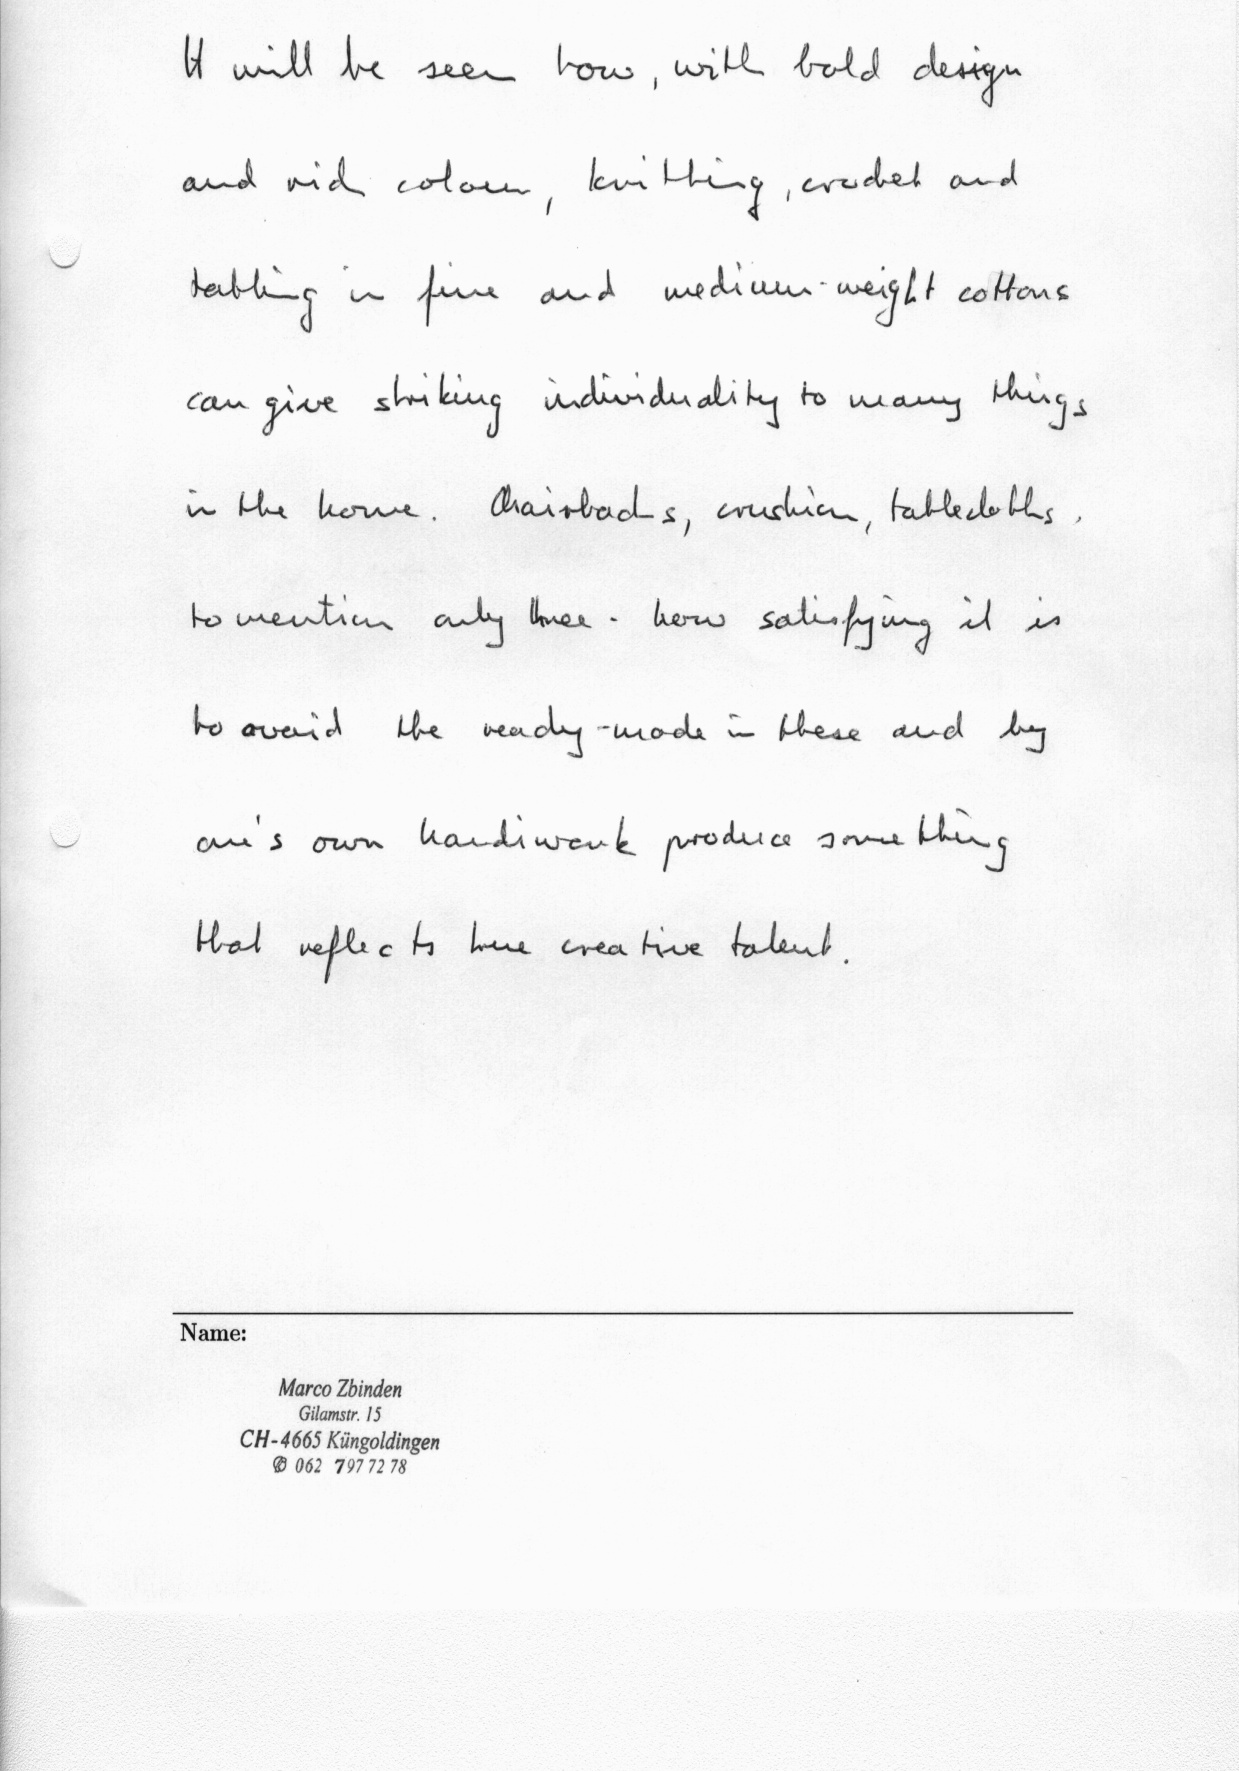 It will be seen how, with bold design
and rich colour, knitting, crochet and
tatting in fine and medium-weight cottons
can give striking individuality to many things
in the home. Chairbacks, crushion, tablecloths.
to mention only three - how satisfying it is
to avoid the ready-made in these and by
one's own handiwork produce something
that reflects true creative talent.
Name:
Marco Zbinden
Gilamstr. 15
CH-4665 Küngoldingen
✆ 062 797 72 78